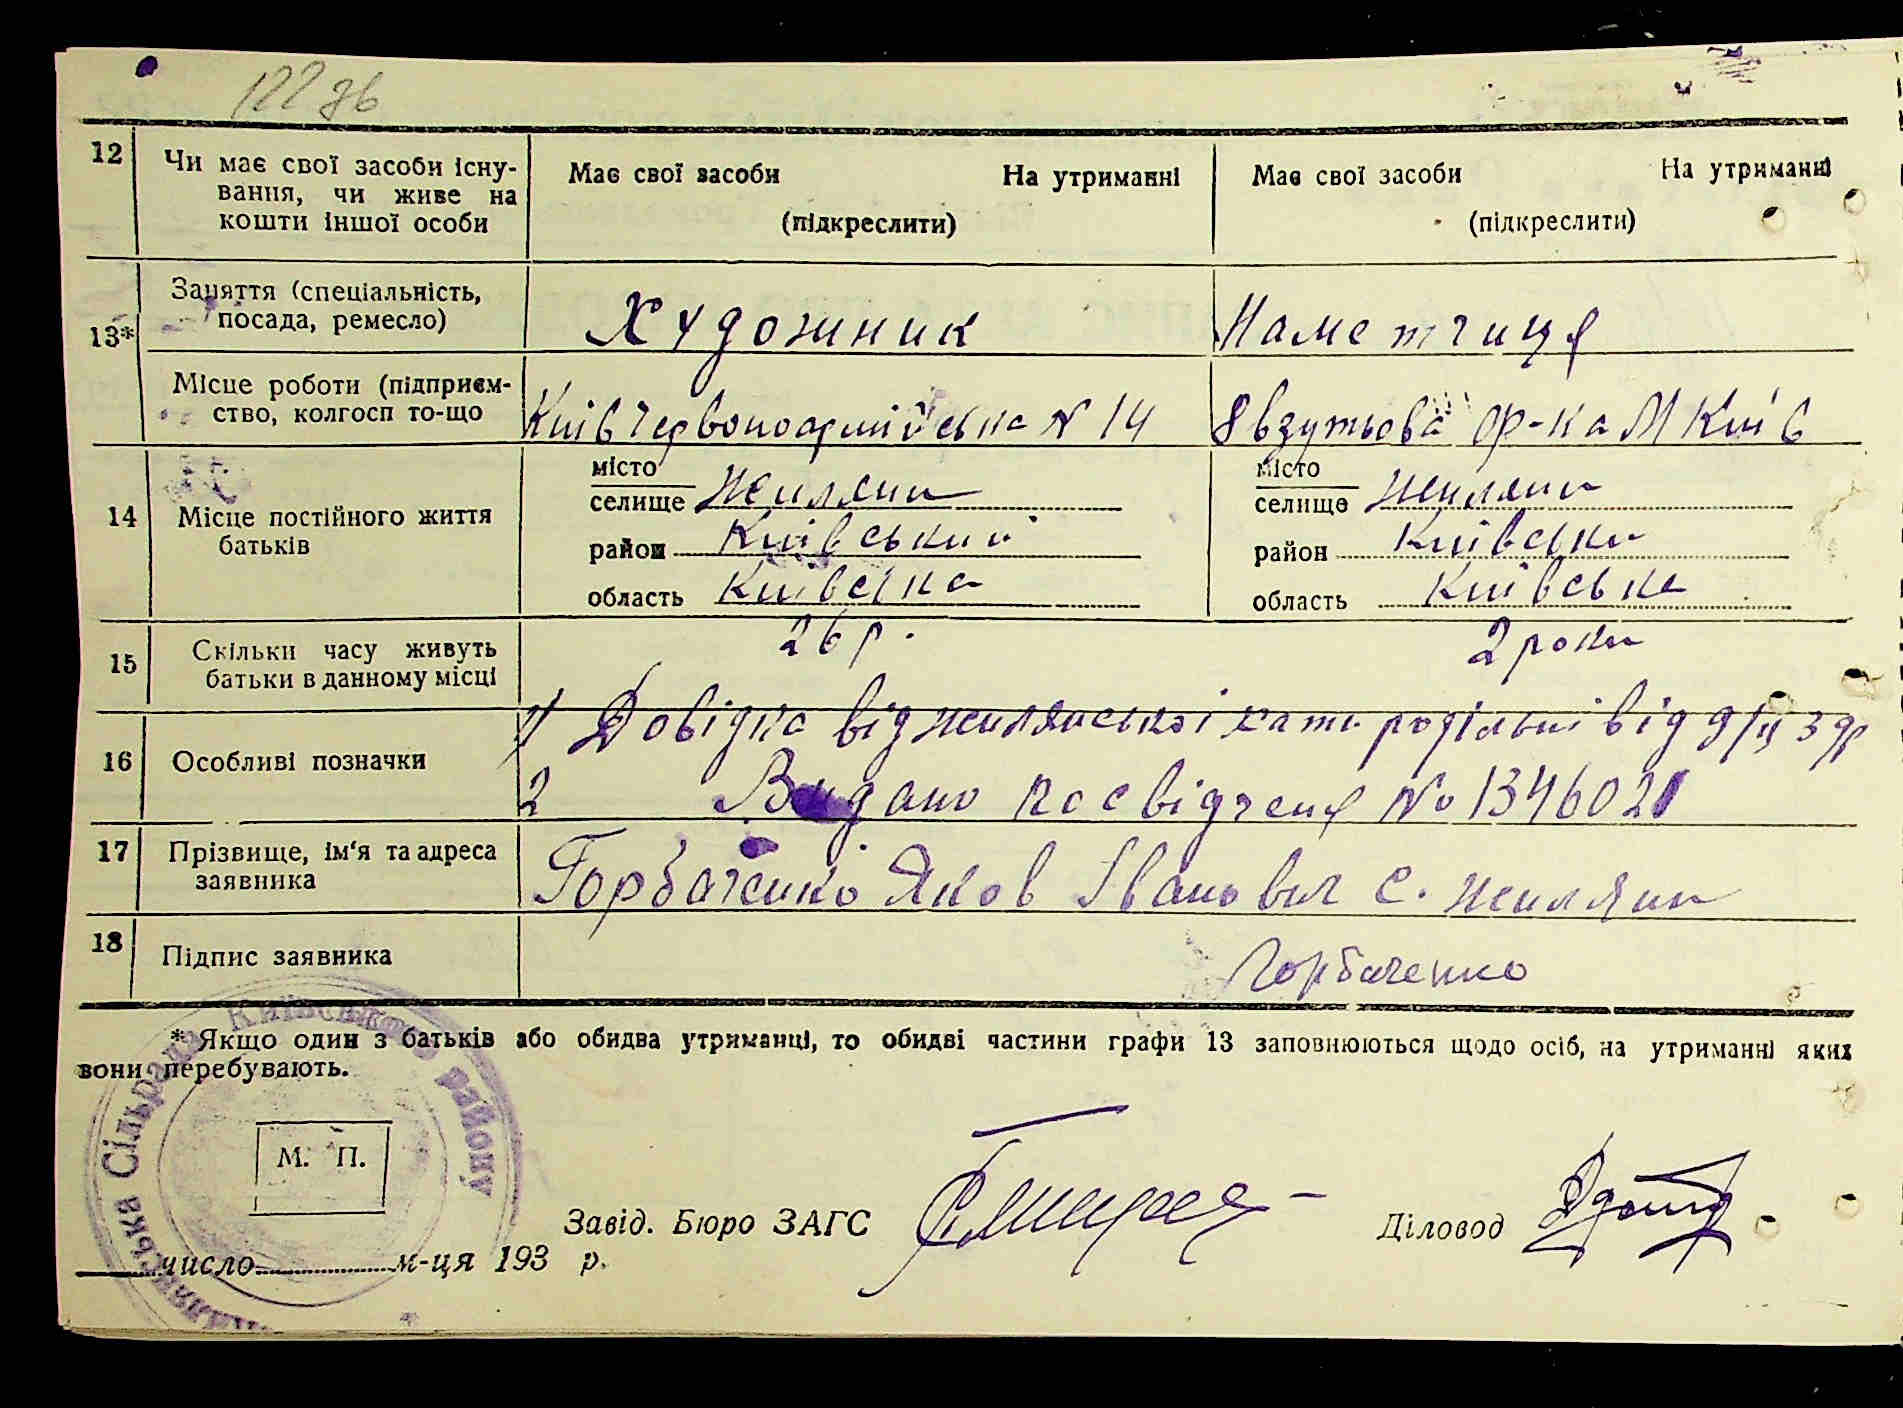 122 зв
12 Чи має свої засоби існу-
вання, чи живе на
кошти іншої особи
Має свої засоби На утриманні
(підкреслити)
Має свої засоби На утриманні
(підкреслити)
13* Заняття (спеціальність,
посада, ремесло)
Художник
Наметчиця
Місце роботи (підприєм-
ство, колгосп то-що
Київ Червоноармійська N 14
8 взутьова ф-ка М Київ
14 Місце постійного життя
батьків
місто
селище Жиляни
район Київський
область Київська
місто
селище Жиляни
район Київськи
область Київська
15 Скільки часу живуть
батьки в данному місці
26 р.
2 роки
16 Особливі позначки
1/ Довідка від жилянської хати родільні від 9/ІІ 3 др
2 Видано посвідченя № 1346021
17 Прізвище, ім'я та адреса
заявника
Горбаченко Яков Іванович с. Жиляни
18 Підпис заявника
Горбаченко
* Якщо один з батьків або обидва утриманці, то обидві частини графи 13 заповнюються щодо осіб, на утриманні яких
вони перебувають.
Сільрада Київського району
М. П.
Завід. Бюро ЗАГС
Діловод
число м-ця 193 р.